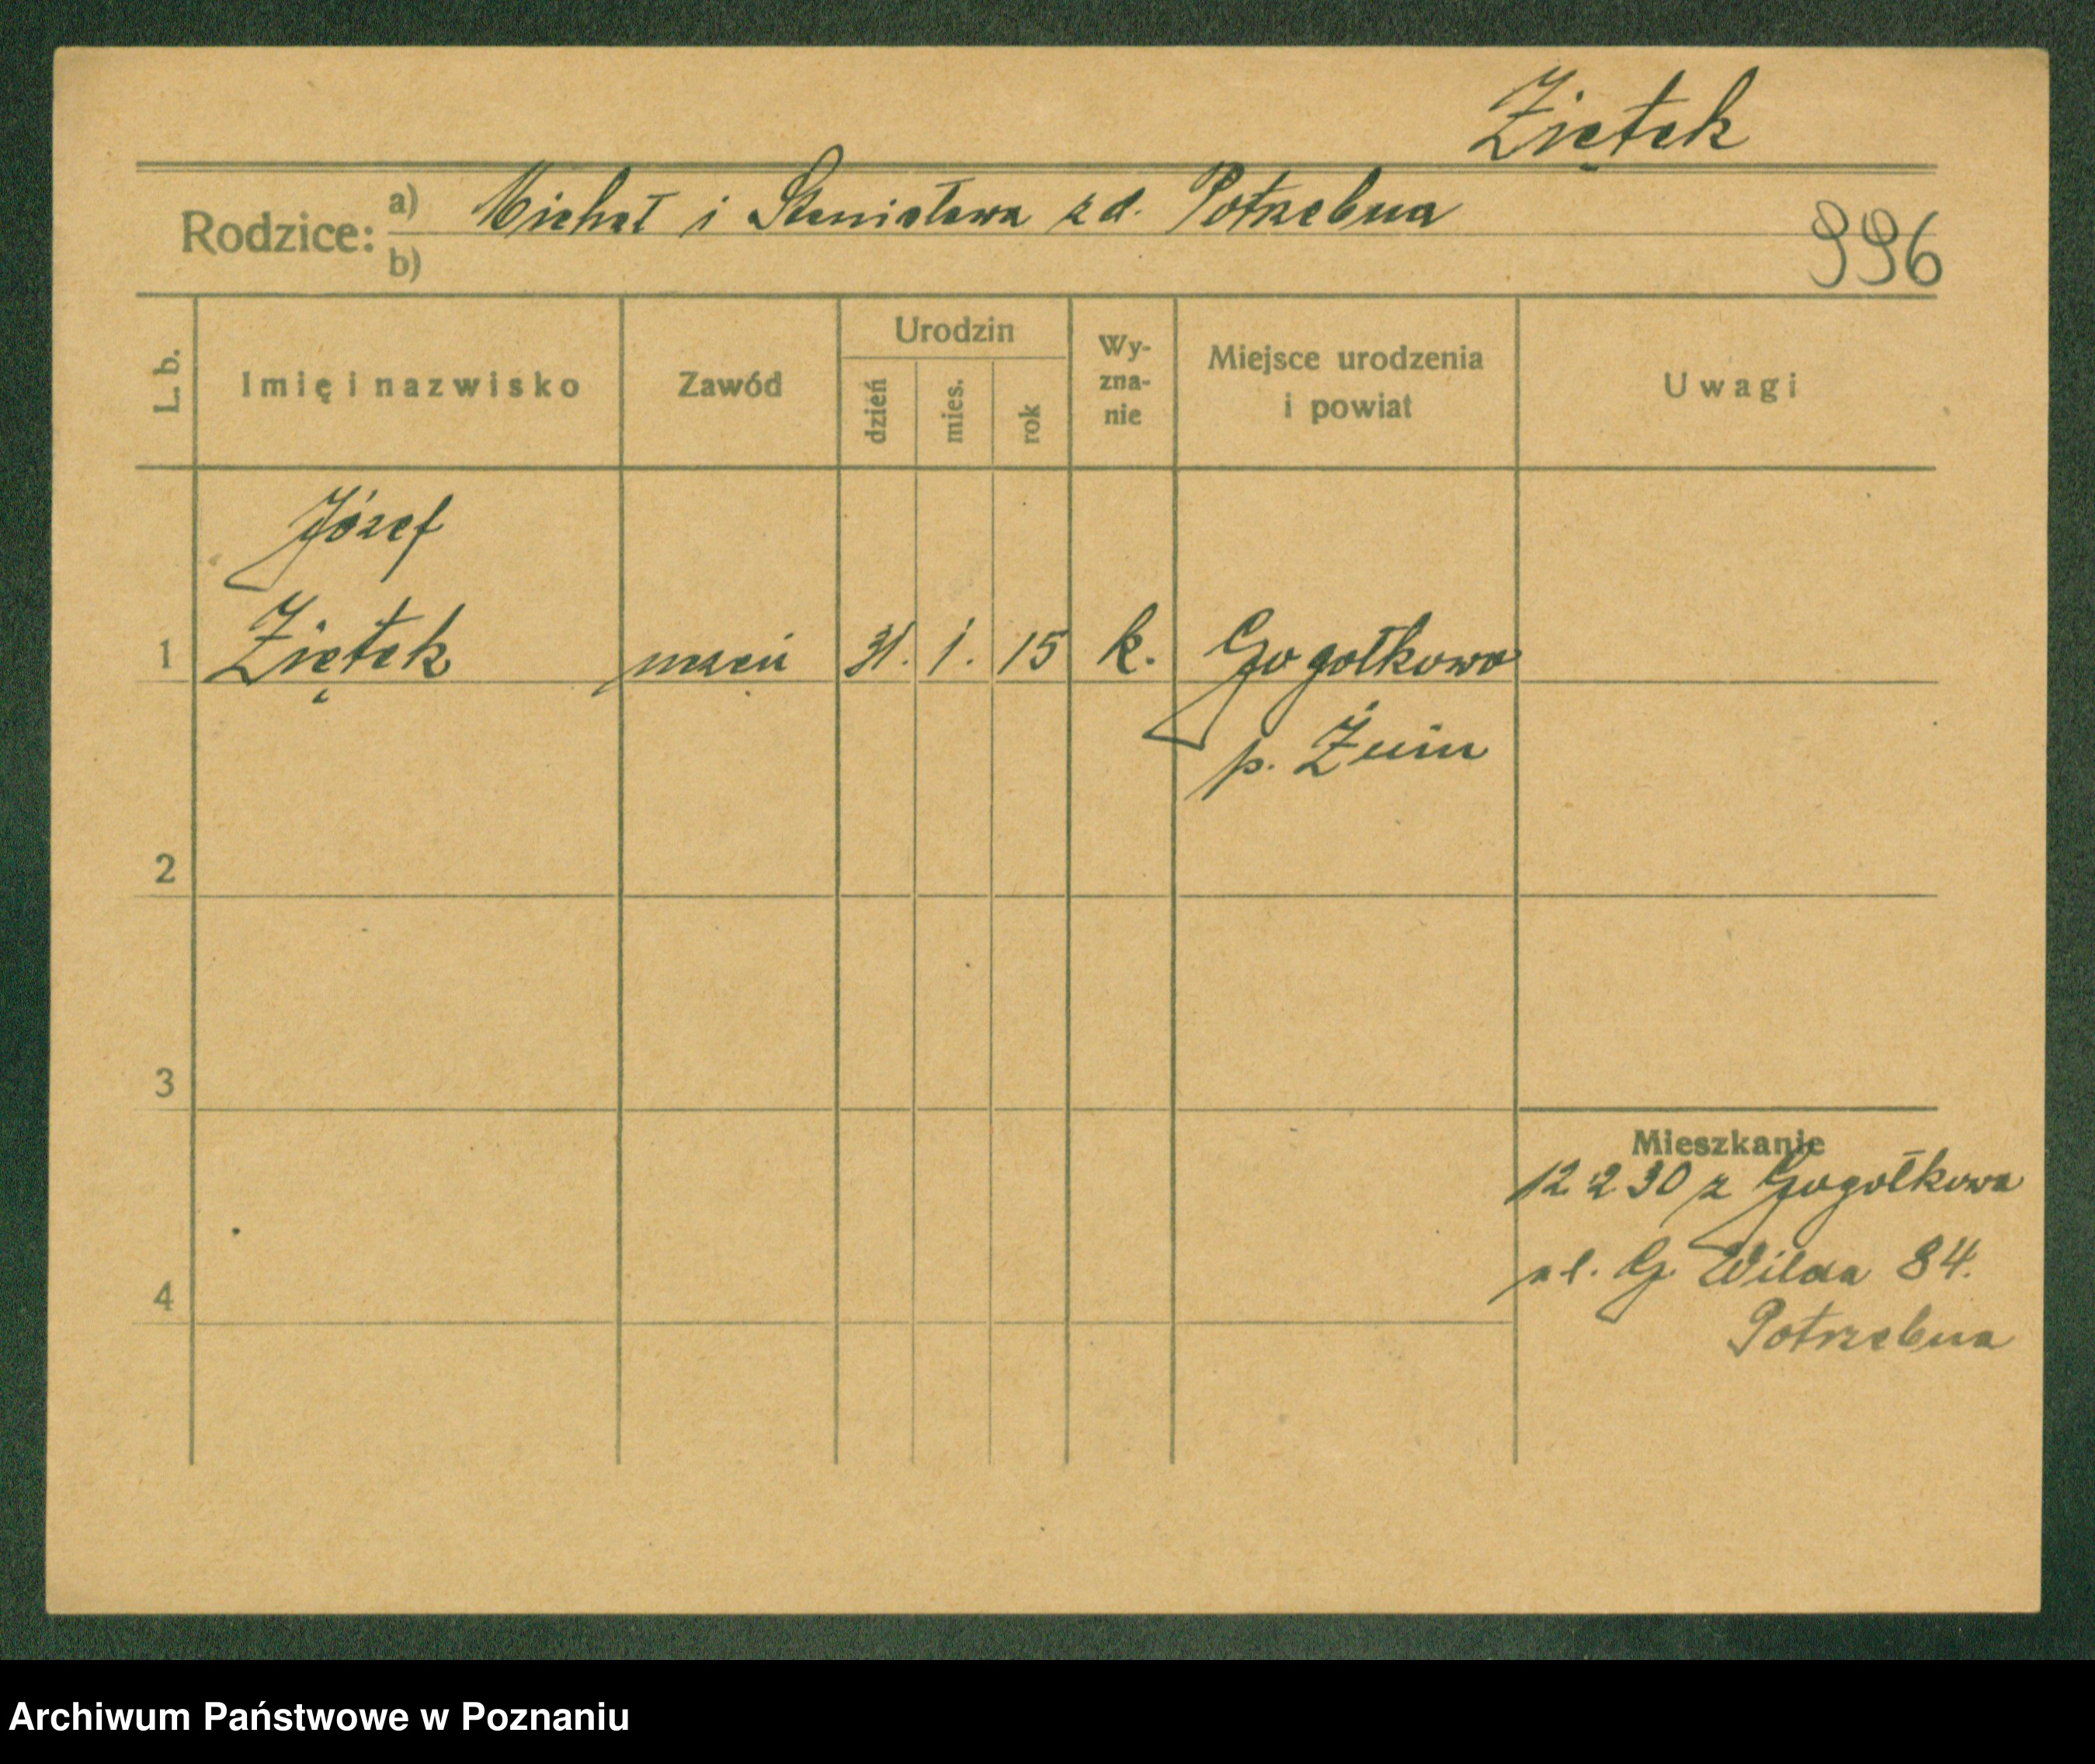 Ziętek
Rodzice: a) Michał i Stanisława z d. Potrzebna
b)
996
L. b. Imię i nazwisko Zawód Urodzin dzień mies. rok Wy-zna-nie Miejsce urodzenia i powiat Uwagi
Józef
1 Ziętek uczeń 31. 1. 15 k. Gogółkowo
p. Żnin
2
3
Mieszkanie
12 2 30 z Gogółkowa
G. Wilda 84.
4
Potrzebna
Archiwum Państwowe w Poznaniu